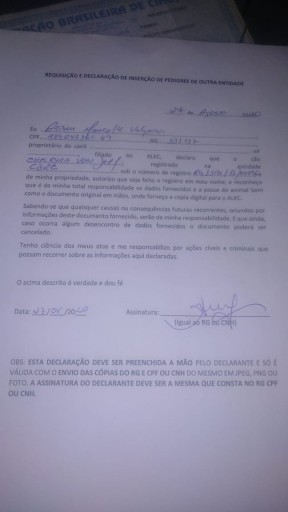 AÇÃO BRASILEIRA DE CIN
REQUISIÇÃO E DECLARAÇÃO DE INSERÇÃO DE PEDIGREE DE OUTRA ENTIDADE
de
Eu
CPF RG
proprietário do canil nº
filiado ao ALKC, declaro que o cão
registrado na entidade
sob o número de registro
de minha propriedade, autorizo que seja feito o registro em meu nome, e reconheço
que é de minha total responsabilidade os dados fornecidos e a posse do animal bem
como o documento original em mãos, onde forneço a copia digital para o ALKC.
Sabendo se que quaisquer causas ou consequências futuras recorrentes, oriundos por
informações deste documento fornecido, serão de minha responsabilidade. E que ainda,
caso ocorra algum desencontro de dados fornecidos o documento poderá ser
cancelado.
Tenho ciência dos meus atos e me responsabilizo por ações cíveis e criminais que
possam recorrer sobre as informações aqui declaradas.
O acima descrito é verdade e dou fé
Data: Assinatura:
(igual ao RG ou CNH)
OBS: ESTA DECLARAÇÃO DEVE SER PREENCHIDA A MÃO PELO DECLARANTE E SÓ É
VÁLIDA COM O ENVIO DAS CÓPIAS DO RG E CPF OU CNH DO MESMO EM JPEG, PNG OU
FOTO. A ASSINATURA DO DECLARANTE DEVE SER A MESMA QUE CONSTA NO RG CPF
OU CNH.